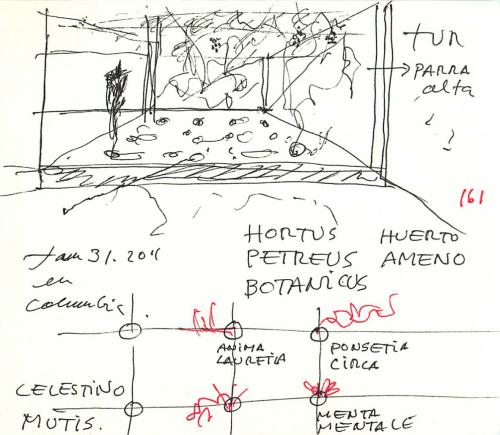 TUR
PARRA
alta
161
HORTUS HUERTO
PETREUS AMENO
BOTANICUS
31.
en
Columbia
ANIMA
LAURETIA
PONSETIA
CIRCA
CELESTINO
MUTIS.
MENTA
MENTALE